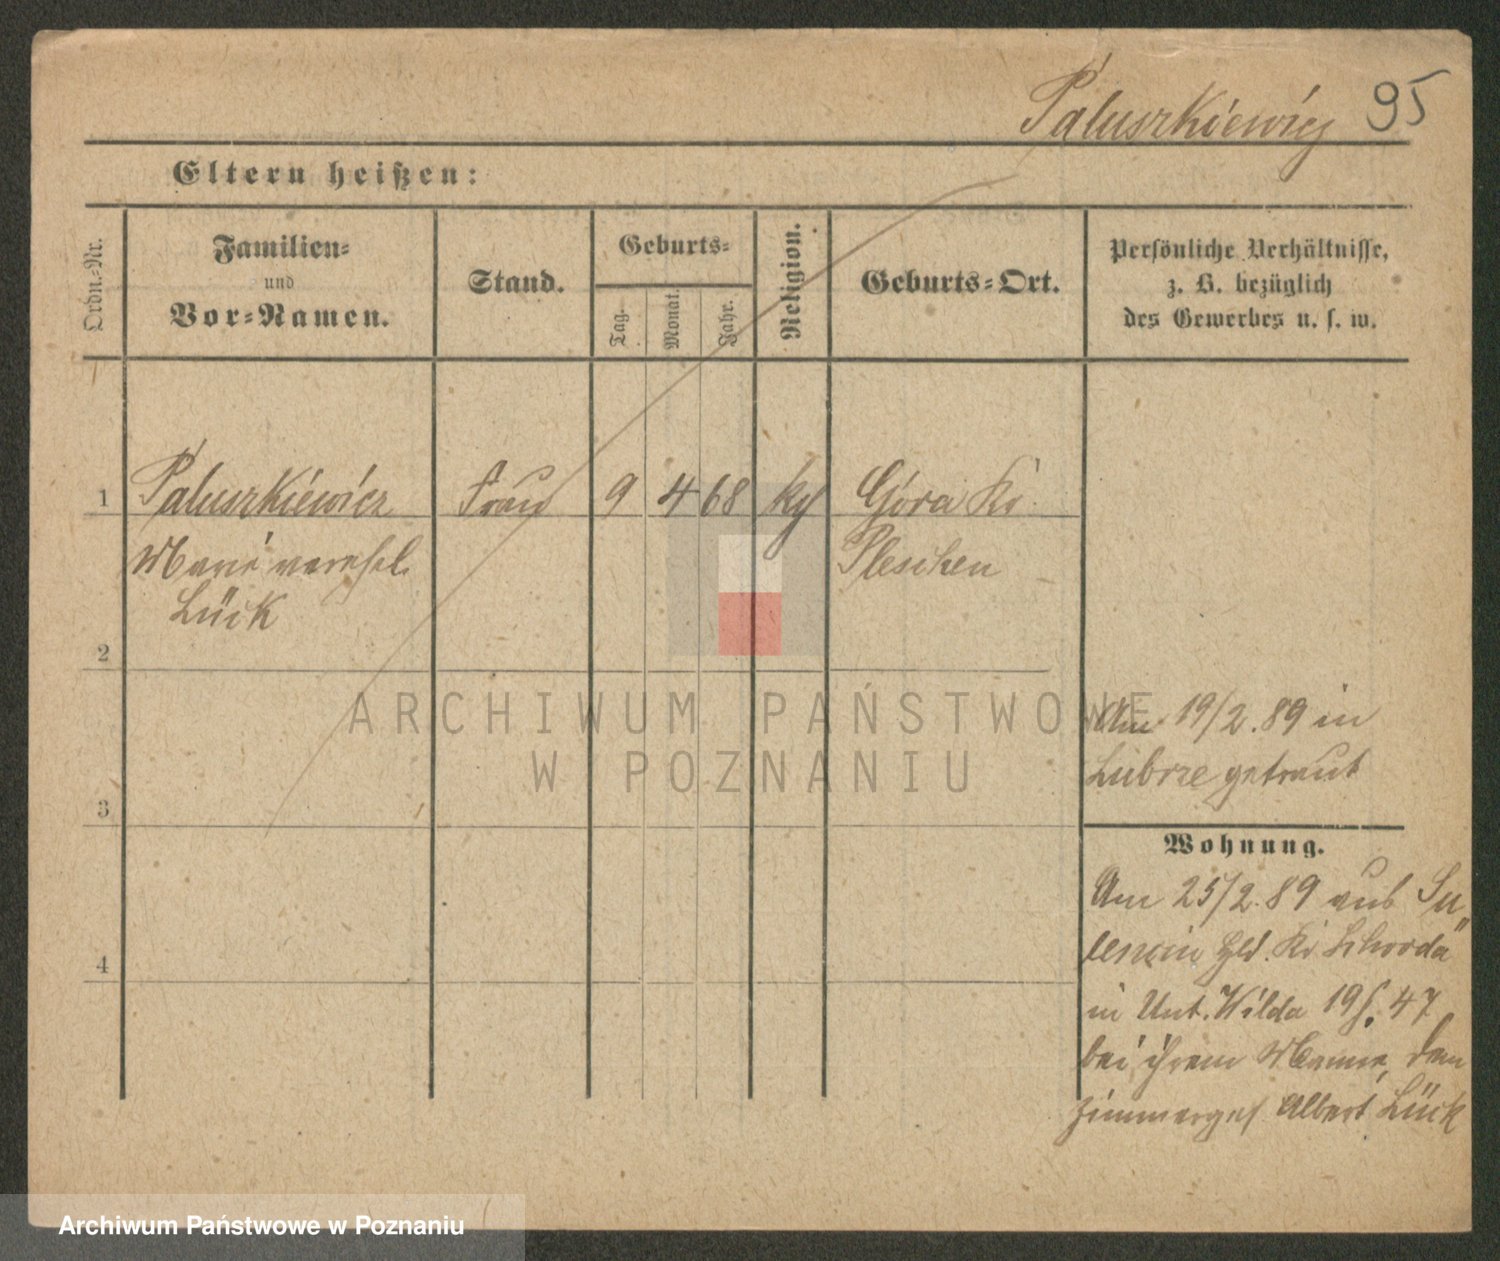 Paluszkiewicz 95
Eltern heißen:
Ordn.-Nr.
Familien-
und
Vor-Namen.
Stand.
Geburts-
Tag.
Monat.
Jahr.
Religion.
Geburts-Ort.
Persönliche Verhältnisse,
z. B. bezüglich
des Gewerbes u. s. w.
1 Paluszkiewicz Frau 9 4 68 kg Góra Kr
Marie verehel. Pleschen
Lück
2
Am 19/2. 89 in
Lubrze getraut
3
Wohnung.
Am 25/2. 89 aus Su„
lencin Kr Schroda
4
in Unt. Wilda 19 47
bei ihrem Manne, dem
Zimmerges Albert Lück
ARCHIWUM PAŃSTWOWE
W POZNANIU
Archiwum Państwowe w Poznaniu